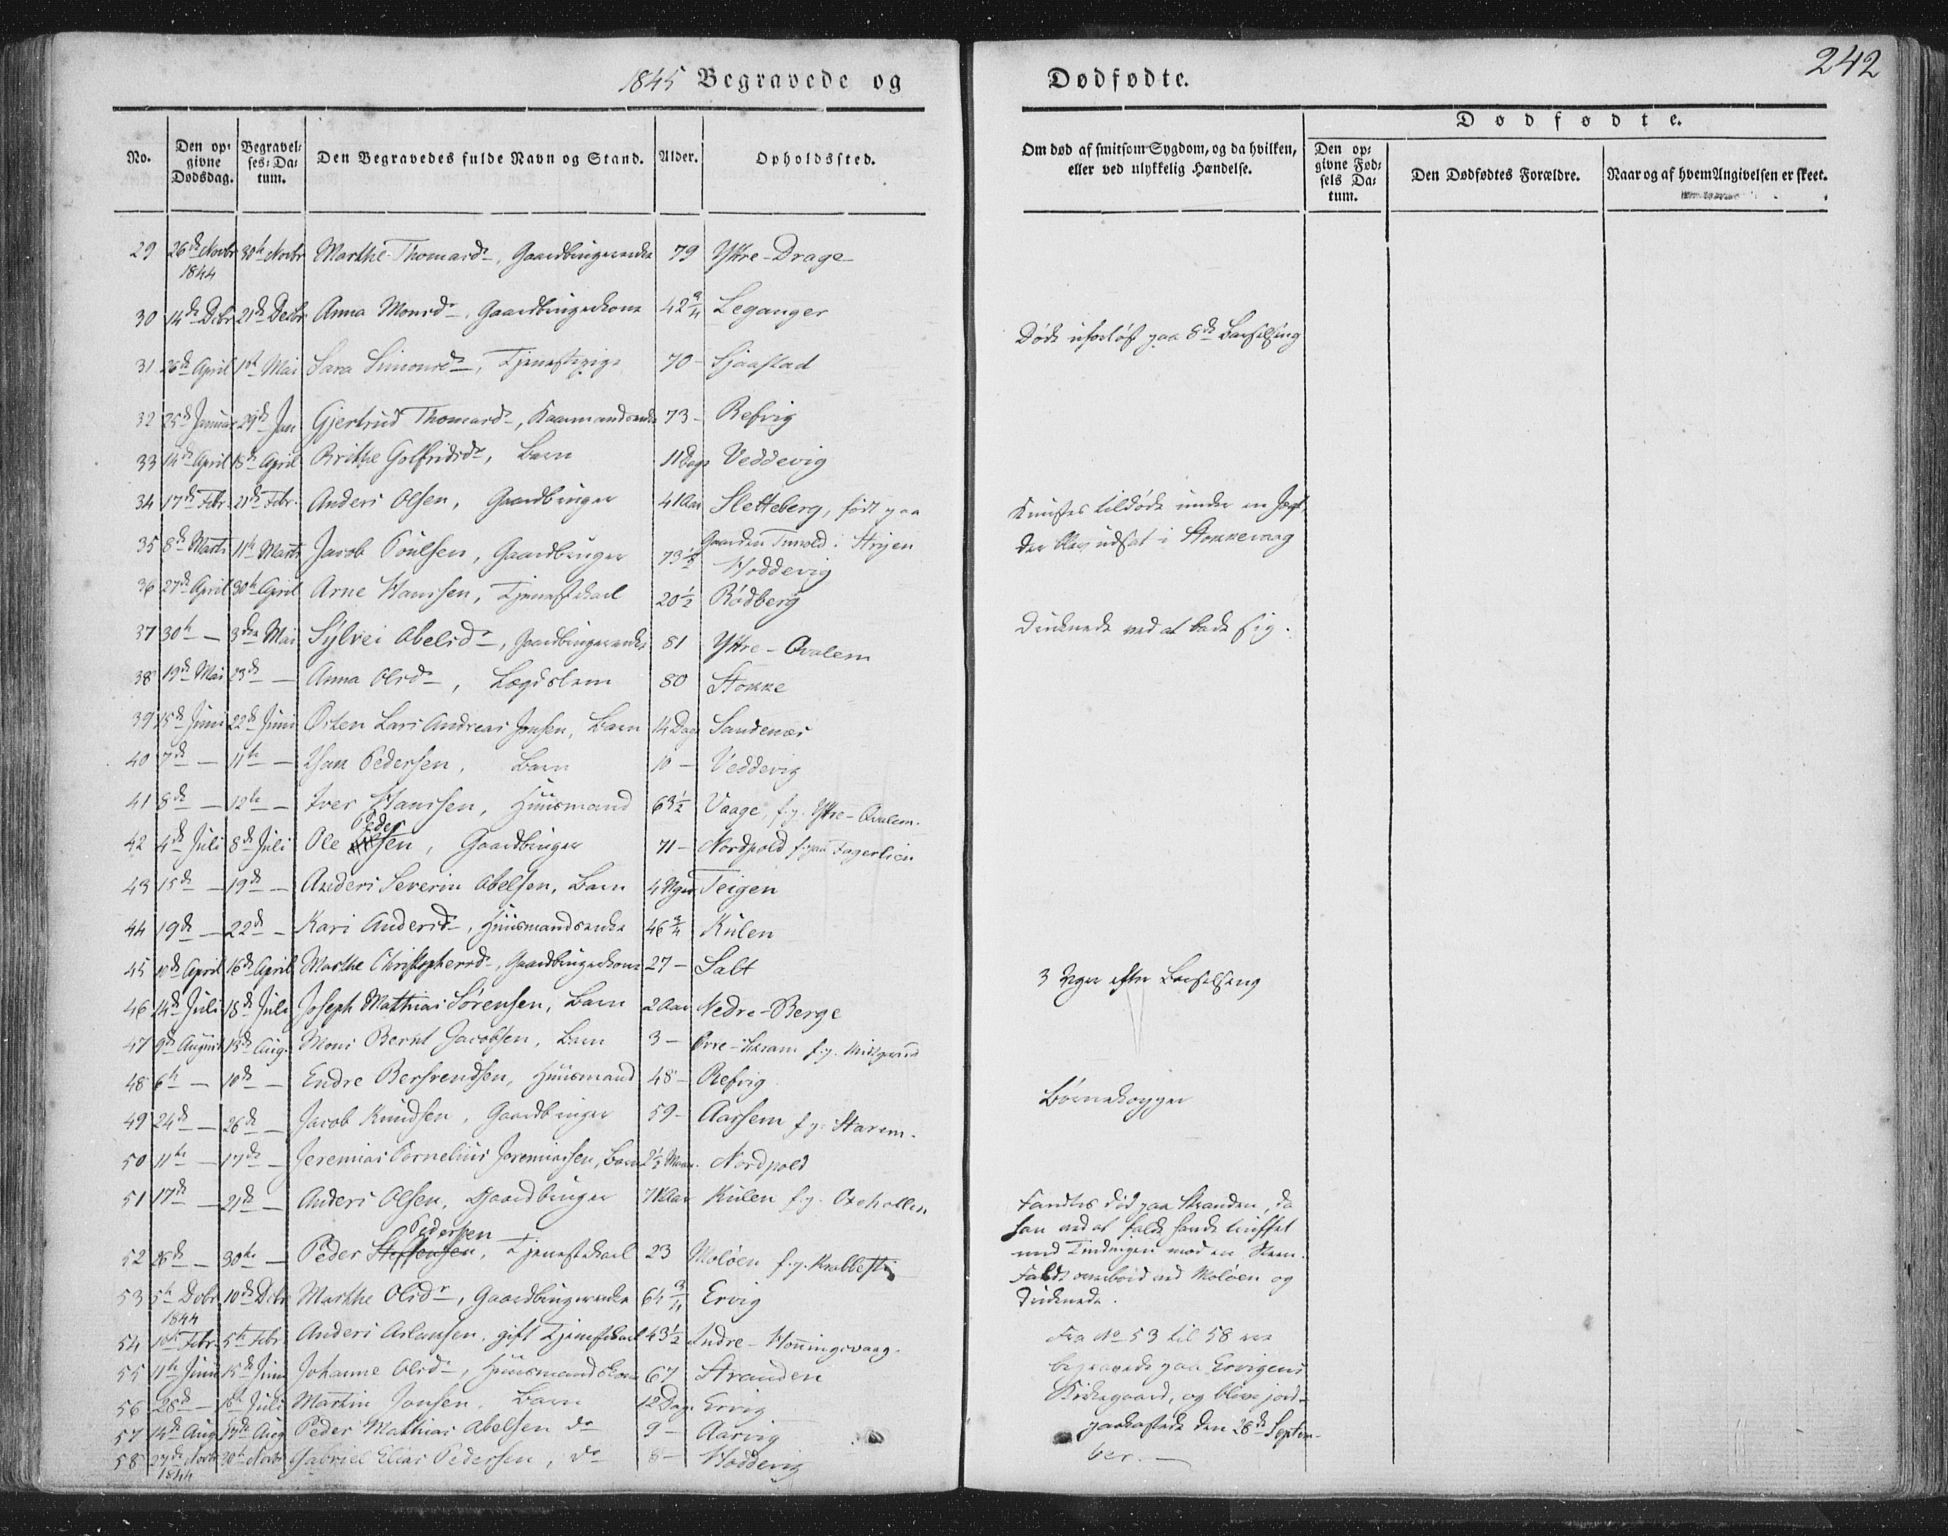 1845 Begravede og
Dødfødte.
242
No.
Den opgivne Dødsdag.
Begravelses-Datum.
Den Begravedes fulde Navn og Stand.
Alder.
Opholdssted.
Om død af smitsom Sygdom, og da hvilken, eller ved ulykkelig Hændelse.
Dødfødte.
Den opgivne Fødsels Datum.
Den Dødfødtes Forældre.
Naar og af hvem Angivelsen er skeet.
29 26de Novbr 1844 30te Novbr Marthe Thomasdr, Gaardbrugerenke 79 Yttre-Drage
30 14de Decbr 21de Decbr Anna Monsdr, Gaardbrugerkone 42 3/4 Leganger Døde uforløst paa 8de Barselseng
31 26de April 1ste Mai Sara Simonsdr, Tjenestepige 70 - Sjaastad
32 25de Januar 29de Jan Gjertrud Thomasdr, Kaarmandsenke 73 - Refvig
33 14de April 18de April Brithe Golfridsdr, Barn 11 Dage Veddevig
34 17de Febr. 21de Febr. Anders Olsen, Gaardbruger 41 Aar Sletteberg, født paa Gaarden Tunold i Stryen Knustes tildøde under en Jagt, der blev udsat i Stokkevaag
35 8de Marts 11te Marts Jacob Poulsen, Gaardbruger 73 1/2 Hoddevig
36 27de April 30te April Arne Hanssen, Tjenestekarl 20 1/2 Rødberg Druknede ved at bade sig.
37 30te - 3die Mai Sylvei Abelsdr, Gaardbrugerenke 81 Yttre-Qvalem
38 19de Mai 23de - Anna Olsdr, Lægdslem 80 Stokke
39 15de Juni 22de Juni Østen Lars Andreas Jonsen, Barn 14 Dage Sandenæs
40 7de - 11te - Hans Pedersen, Barn 10 - Veddevig
41 8de - 12te - Iver Hanssen, Huusmand 63 1/2 Vaage, f. p. Yttre-Qvalem.
42 4de Juli 8de Juli Ole Pedersen, Gaardbruger 71 - Nordpold f. paa Fagerlien
43 15de - 19de - Anders Severin Abelsen, Barn 4 Uger Teigen
44 19de - 22de - Kari Andersdr, Huusmandsenke 46 3/4 Kulen
45 10de April 16de April Marthe Christophersdr, Gaardbrugerkone 27 - Salt 3 Uger efter Barselseng
46 14de Juli 18de Juli Joseph Mathias Sørensen, Barn 2 Aar Nedre-Berge
47 9de August 13de Aug. Mons Bernt Jacobsen, Barn 3 - Øvre-Skram f. p. Midtgaard
48 6te - 10de - Endre Berhrendsen, Huusmand 48 - Refvig
49 24de - 26de - Jacob Knudsen, Gaardbruger 59 - Aarsem f. p. Starem. Børnekopper
50 11te - 17de - Jeremias Cornelius Jeremiassen, Barn 2 1/2 Maan. Nordpold
51 17de - 21de - Anders Olsen, Gaardbruger 71 Aar Kulen f. p. Oxehollen Fandtes død paa Stranden, da han ved at falde havde truffet med Tindingen mod en Steen.
52 26de - 30te - Peder Pedersen, Tjenestekarl 23 Moløen f. p. Krabbestig Faldt overbord ved Moløen og druknede.
53 5te Decbr 1844 10de Decbr Marthe Olsdr, Gaardbrugerenke 64 3/4 Ervig
54 10de Febr. 5te Febr Anders Aslaksen, gift Tjenestekarl 43 1/2 Indre-Honningsvaag. Fra No 53 til 58 ere
55 11te Juni 15de Juni Johanne Olsdr, Huusmandskone 67 Stranden begravede paa Ervigens
56 28de - 1ste Juli Martin Jonsen, Barn 12 Dage Ervig Kirkegaard, og bleve jord-
57 14de Aug 17de Aug Peder Mathias Abelsen do 9 - Aarvig paakastede den 28de Septem-
58 27de Novbr 1844 30te Novbr Gabriel Elias Pedersen, do 8 - Hoddevig ber. -